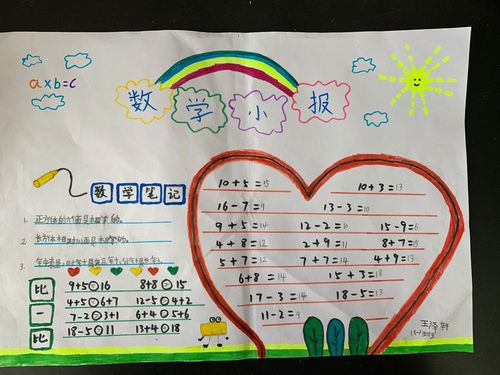 a×b=c
数学小报
数学笔记
1. 正方体的六个面是相同的。
2. 长方体相对的面是相同的。
3.
比一比
9+5 16
8+8 15
4+5 6+7
12-5 4+2
7-2 3+1
6+4 5+6
18-5 11
13+4 18
10+5=15
10+3=13
16-7=9
13-3=10
9+5=14
12-2=10
15-9=6
4+8=12
2+9=11
8+7=15
5+7=12
7+7=14
4+9=13
6+8=14
15+3=18
17-3=14
18-5=13
11-2=9